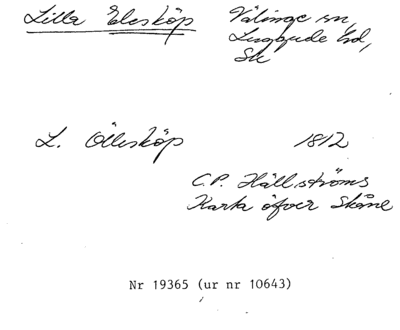 Lilla Eleskőp Välinge sn,
Luggude hd,
Sk
L. Ölleskőp 1812
C.P. Hällströms
Karta öfver Skåne
Nr 19365 (ur nr 10643)